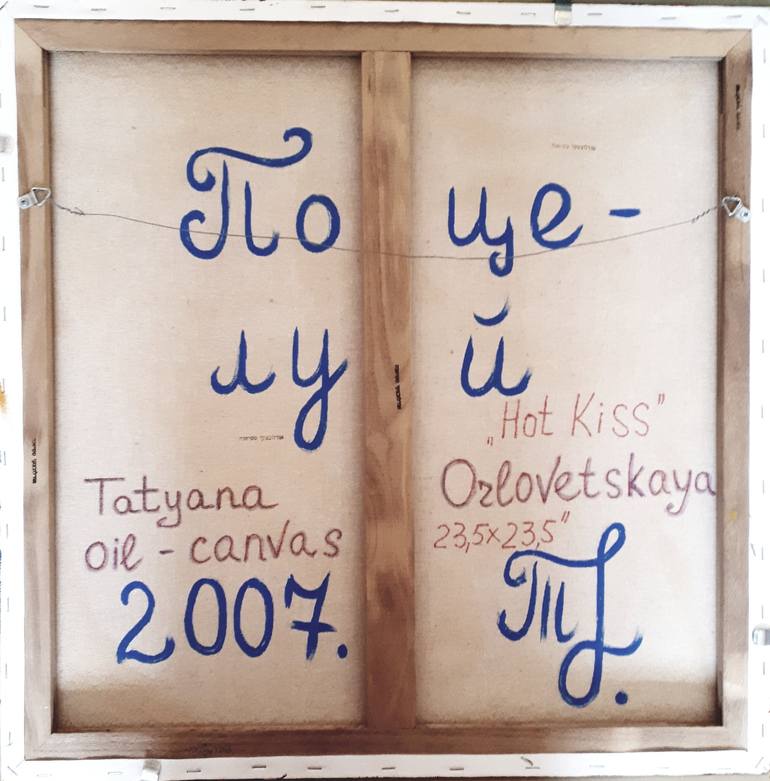 Поще-
луй
„Hot Kiss”
Tatyana Orlovetskaya
oil - canvas 23,5x23,5”
2007.